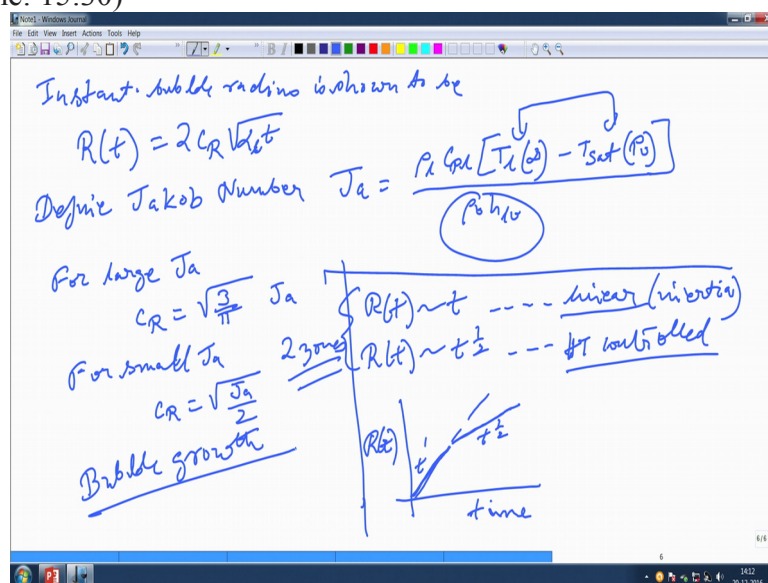 ne: 15:50)
Note1 - Windows Journal
File Edit View Insert Actions Tools Help
Instant. bubble radius is shown to be
R(t) = 2 C_R √α_l t
Define Jakob Number Ja = ρ_l C_pl [T_l(∞) - T_sat(P_v)] / ρ_v h_lv
For large Ja
C_R = √(3/π) Ja
For small Ja
C_R = √(Ja/2)
Bubble growth
2 zones
R(t) ~ t ---- linear (inertia)
R(t) ~ t^1/2 --- HT controlled
R(t)
t'
t^1/2
time
6/6
6
14:12